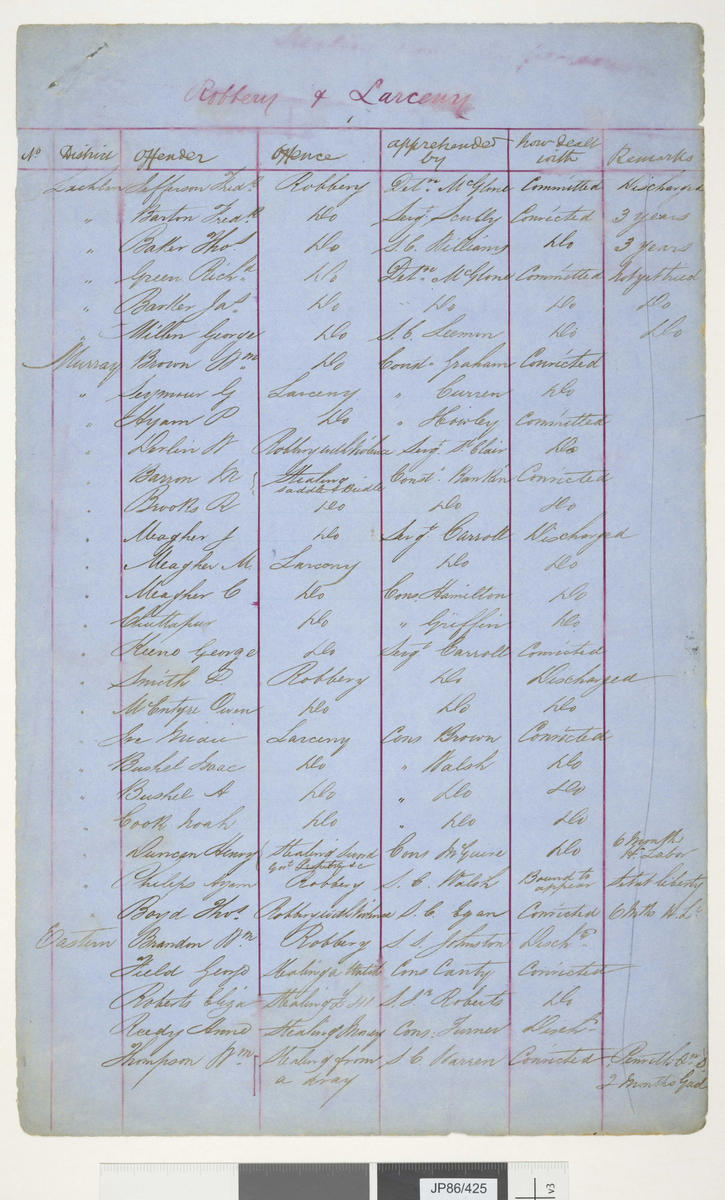 Robbery & Larceny
No District Offender Offence apprehended by how dealt with Remarks
Lachlan Jefferson Fredk Robbery Detve McGlone Committed Discharged
" Barton Fredk Do Sergt Scully Convicted 3 years
" Baker Thos Do S.C. Williams Do 3 years
" Green Richd Do Detve McGlone Committed Not yet tried
" Barker Jas Do Do Do Do
Miller George Do S.C. Leemon Do Do
Murray Brown Wm Do Cond Graham Convicted
" Seymour G Larceny " Curren Do
" Hyam P Do " Howley Committed
" Devlin W Robbery with Violence Sergt St Clair Do
" Barron M Stealing Saddle & Bridle Const. Rankin Convicted
" Brooks R Do Do Do
" Meagher J Do Sergt Carroll Discharged
" Meagher M. Larceny Do Do
" Meagher C Do Cons. Hamilton Do
" Chuttapur Do " Griffin Do
" Keene George Do Sergt Carroll Convicted
" Smith Robbery Do Discharged
" McEntyre Owen Do Do Do
" Larceny Cons Brown Convicted
" Bushel Isaac Do " Walsh Do
" Bushel A Do " Do Do
" Cook Noah Do " Do Do
" Duncan Henry Stealing from Cons McGuire Do 6 Month H. Labor
" Philips Robbery S.C. Walsh Bound to appear at liberty
Boyd Thos. Robbery with Violence S.C. Egan Convicted 6 Mths H. Lr
Eastern Brandon Wm Robbery S.S. Johnston Disch
Field George Stealing a Watch Cons Canty Convicted
Roberts Eliza Stealing £ Roberts Do
Reedy Anne Stealing Money Cons. Turner Disch
Thompson Wm Stealing from a dray S.C. Warren Convicted Penrith
2 Months Gaol
JP86/425
v3